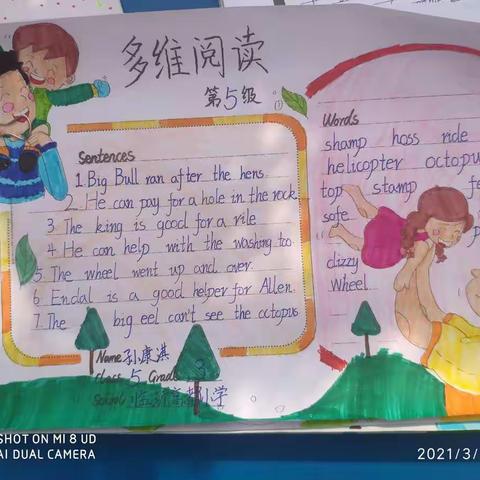 多维阅读
第5级
Sentences
1. Big Bull ran after the hens.
2. He can pay for a hole in the rock.
3. The king is good for a rile
4. He can help with the washing too.
5. The wheel went up and over.
6. Endal is a good helper for Allen.
7. The big eel can't see the octopus
Name 孙康淇
Class 5 Grade 3
School 小学
Words
shamp hoss ride
helicopter octopu
top stamp fe
safe
dizzy
Wheel
SHOT ON MI 8 UD
AI DUAL CAMERA
2021/3/